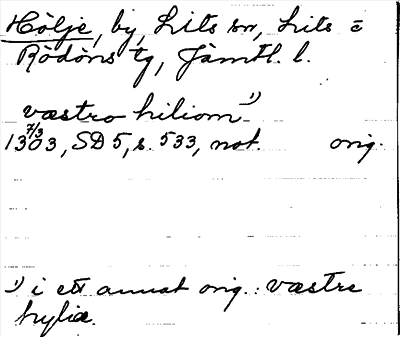 Hölje, by, Lits sn, Lits o
Rödöns tg, Jämtl. l.
væstro hiliom 1)
1303 7/3, SD 5, s. 533, not. orig.
1) i ett annat orig.: væstre
hyliæ.